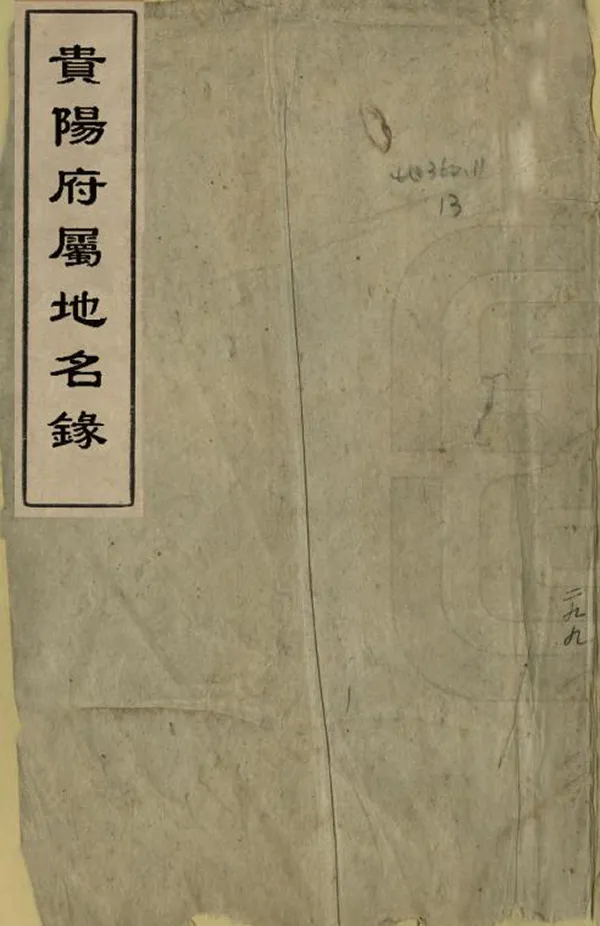 貴陽府屬地名錄
地360.11
13
二九九